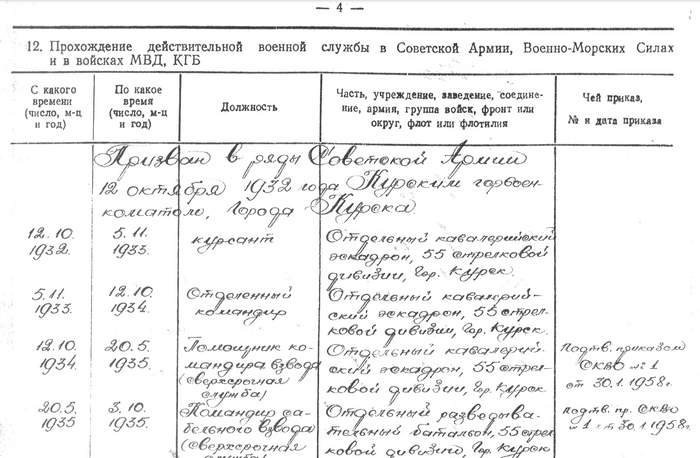 — 4 —
12. Прохождение действительной военной службы в Советской Армии, Военно-Морских Силах
и в войсках МВД, КГБ
С какого
времени
(число, м-ц
и год)
По какое
время
(число, м-ц
и год)
Должность
Часть, учреждение, заведение, соедине-
ние, армия, группа войск, фронт или
округ, флот или флотилия
Чей приказ,
№ и дата приказа
Призван в ряды Советской Армии
12 октября 1932 года Курским горвоен-
коматом, Города Курска
12.10.
1932.
5.11.
1933.
курсант
Отдельный кавалерийский
эскадрон, 55 стрелковой
дивизии, Гор. Курск.
5.11.
1933.
12.10.
1934.
Отделенный
командир
Отдельный кавалерий-
ский эскадрон, 55 стрел-
ковой дивизии, Гор. Курск.
12.10.
1934
20.5.
1935.
Помощник ко-
мандира взвода
(сверхсрочная
служба)
Отдельный кавалерий-
ский эскадрон, 55 стрел-
ковой дивизии, Гор. Курск
Подтв. приказом
СКВО № 1
от 30.1.1958г.
20.5.
1935
3.10.
1935.
Командир са-
бельного взвода
(сверхсрочная
служба)
Отдельный разведыва-
тельный батальон, 55 стрел-
ковой дивизии, Гор. Курск
подтв. пр. СКВО
№ 1 от 30.1.1958г.